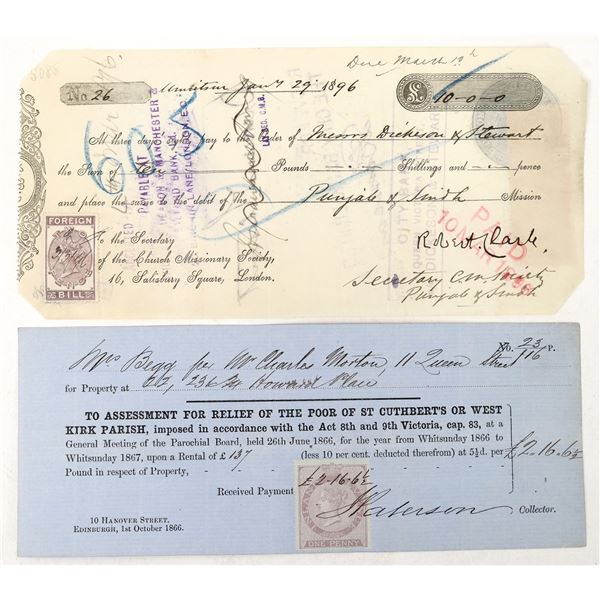 Due March 10th
No 26
Amritsur Jany 29 1896
£ 10-0-0
At three days pay to order of Messrs Dickeson & Stewart
the Sum of ten Pounds - Shillings and - pence
and place the same to the debit of the Punjab & Sindh Mission
To the Secretary
of the Church Missionary Society,
16, Salisbury Square, London.
Robert Clark
Secretary C.M. Society
Punjab & Sindh
FOREIGN
BILL
PAYABLE AT
MANCHESTER &
LANE, LONDON, E.C.
PAID
10 MAR 1896
Mrs Begg per Mr Charles Morton, 11 Queen Street
No. 23/16 P.
for Property at 22, 23 & 24 Howard Place
TO ASSESSMENT FOR RELIEF OF THE POOR OF ST CUTHBERT'S OR WEST
KIRK PARISH, imposed in accordance with the Act 8th and 9th Victoria, cap. 83, at a
General Meeting of the Parochial Board, held 26th June 1866, for the year from Whitsunday 1866 to
Whitsunday 1867, upon a Rental of £137 (less 10 per cent. deducted therefrom) at 5½d. per
Pound in respect of Property,
£2-16-6½
£2-16-6½
Received Payment
ONE PENNY
J Paterson
Collector.
10 HANOVER STREET.
EDINBURGH, 1st October 1866.